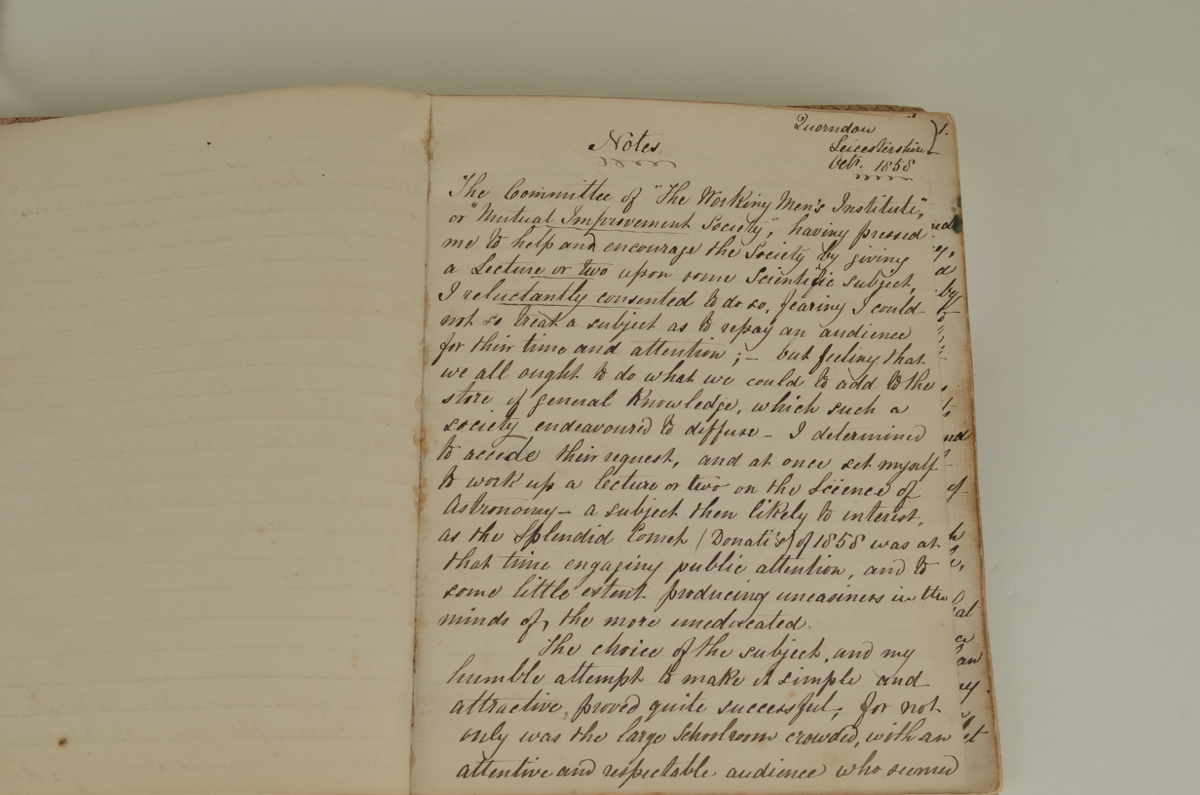 Quorndon
1.
Leicestershire
Octr. 1858
Notes
The Committee of "The Working Men's Institute",
or "Mutual Improvement Society", having pressed
me to help and encourage the Society by giving
a Lecture or two upon some Scientific subject,
I reluctantly consented to do so, fearing I could
not so treat a subject as to repay an audience
for their time and attention; — but feeling that
we all ought to do what we could to add to the
store of general knowledge, which such a
society endeavoured to diffuse — I determined
to accede their request, and at once set myself
to work up a lecture or two on the Science of
Astronomy — a subject then likely to interest,
as the Splendid Comet (Donati's) of 1858 was at
that time engaging public attention, and to
some little extent producing uneasiness in the
minds of, the more uneducated.
The choice of the subject, and my
humble attempt to make it simple and
attractive, proved quite successful, for not
only was the large Schoolroom crowded, with an
attentive and respectable audience who seemed